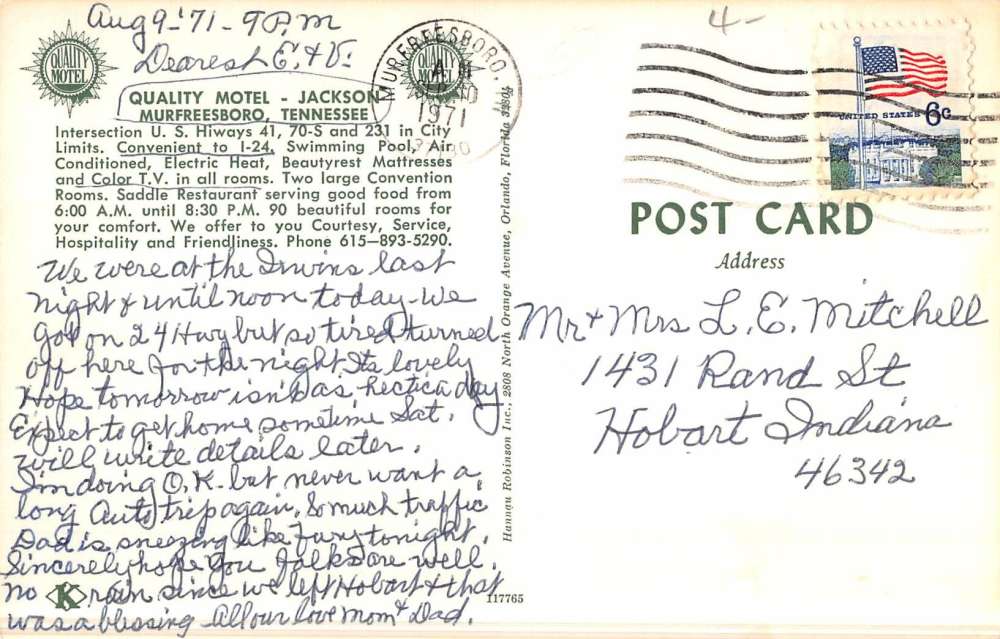 Aug 9-'71-9 P.M
Dearest E. & V.
QUALITY MOTEL
QUALITY MOTEL
QUALITY MOTEL - JACKSON
MURFREESBORO, TENNESSEE
Intersection U. S. Hiways 41, 70-S and 231 in City
Limits. Convenient to I-24. Swimming Pool, Air
Conditioned, Electric Heat, Beautyrest Mattresses
and Color T.V. in all rooms. Two large Convention
Rooms. Saddle Restaurant serving good food from
6:00 A.M. until 8:30 P.M. 90 beautiful rooms for
your comfort. We offer to you Courtesy, Service,
Hospitality and Friendliness. Phone 615—893-5290.
We were at the Irwins last
night & until noon today-We
got on 24 Hwy but so tired turned
off here for the night. Its lovely
Hope tomorrow isn't as hectic a day
Expect to get home sometime Sat.
Will write details later.
I'm doing O.K. but never want a
long Auto trip again. So much traffic
Dad is sneezing like fury tonight.
Sincerely hope you folks are well.
no rain since we left Hobart & that
was a blessing All our love Mom & Dad.
K
117765
Hannau Robinson Inc., 2808 North Orange Avenue, Orlando, Florida
MURFREESBORO,
1971
4-
UNITED STATES 6c
POST CARD
Address
Mr & Mrs L. E. Mitchell
1431 Rand St
Hobart Indiana
46342